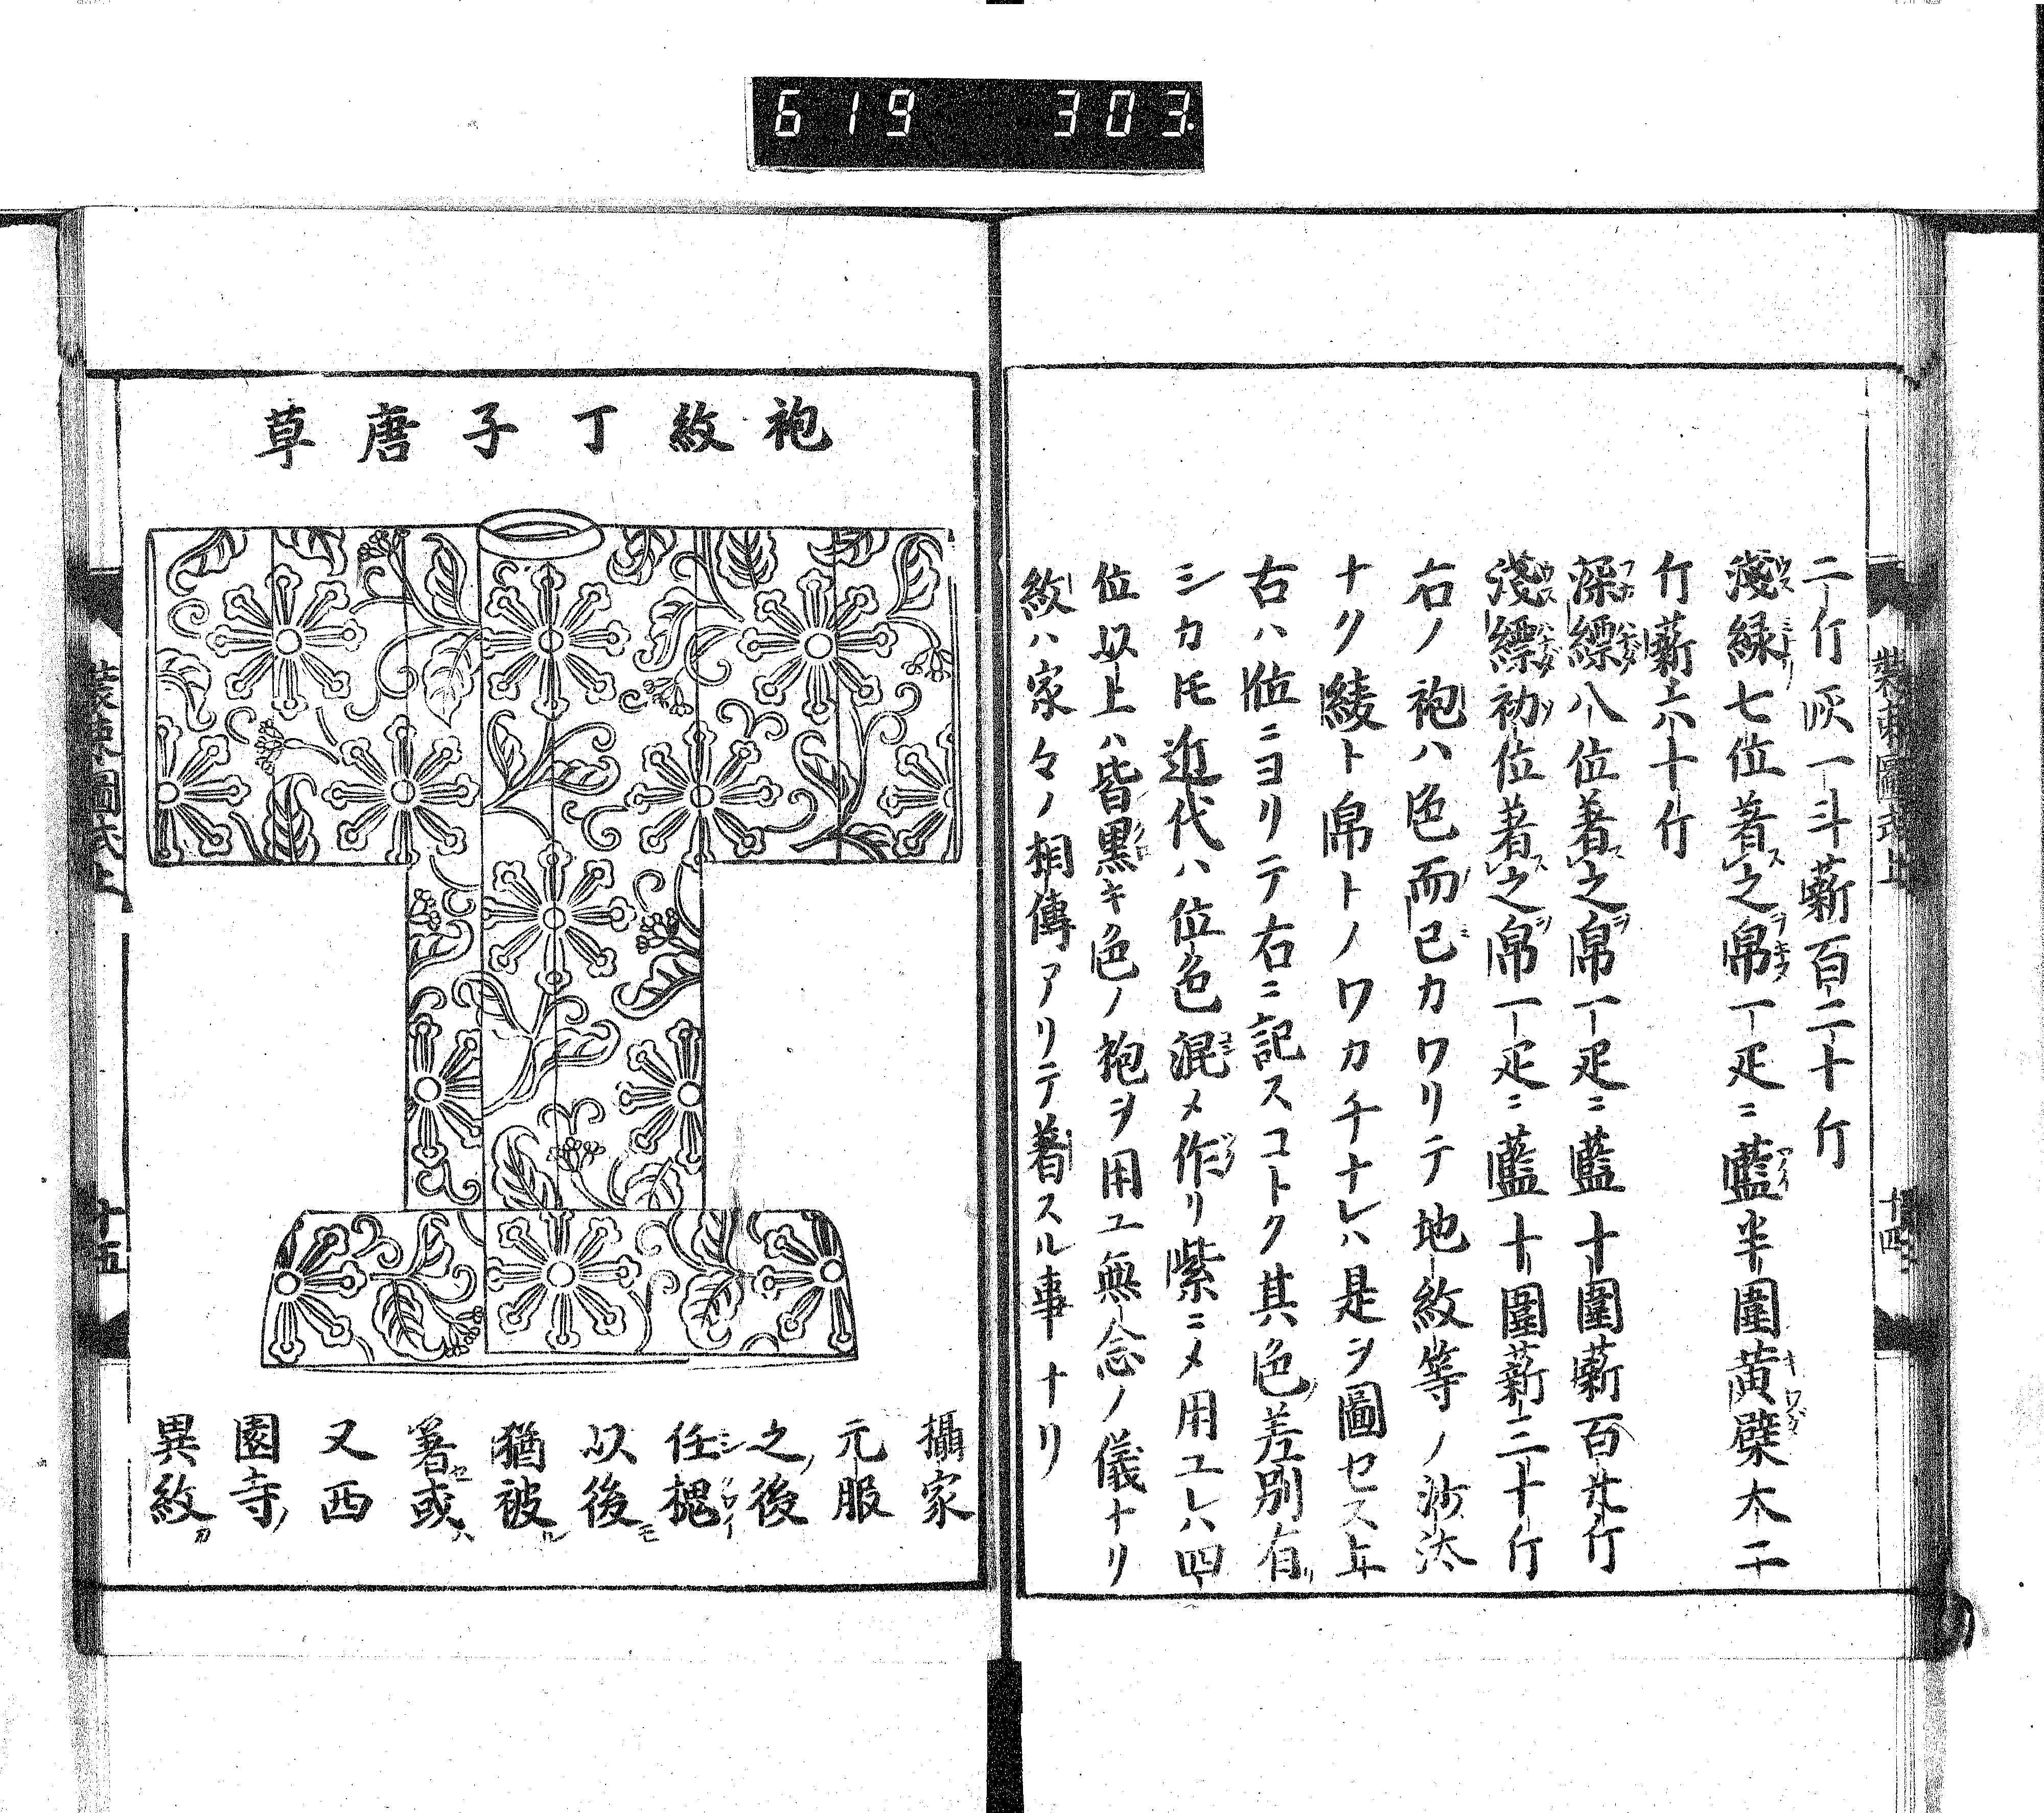 619 303
裝束圖式上
十四
二斤灰一斗薪百二十斤
淺緑七位著之帛一疋ニ藍半圍黄檗大二
斤薪六十斤
深縹八位著之帛一疋ニ藍十圍薪百廾斤
淺縹初位著之帛一疋ニ藍十圍薪三十斤
右ノ袍ハ色而已カワリテ地紋等ノ沙汰
ナク綾ト帛トノワカチナレハ是ヲ圖セス上
古ハ位ニヨリテ右ニ記スコトク其色差別有
シカ𪜈近代ハ位色混メ作リ紫ニメ用ユレハ四
位以上ハ皆黒キ色ノ袍ヲ用ユ無念ノ儀ナリ
紋ハ家々ノ相傳アリテ着スル事ナリ
袍紋丁子唐草
攝家
元服
之後
任槐
以後モ
猶被ル
著セ或ハ
又西
園寺ノ
異紋カ
十五